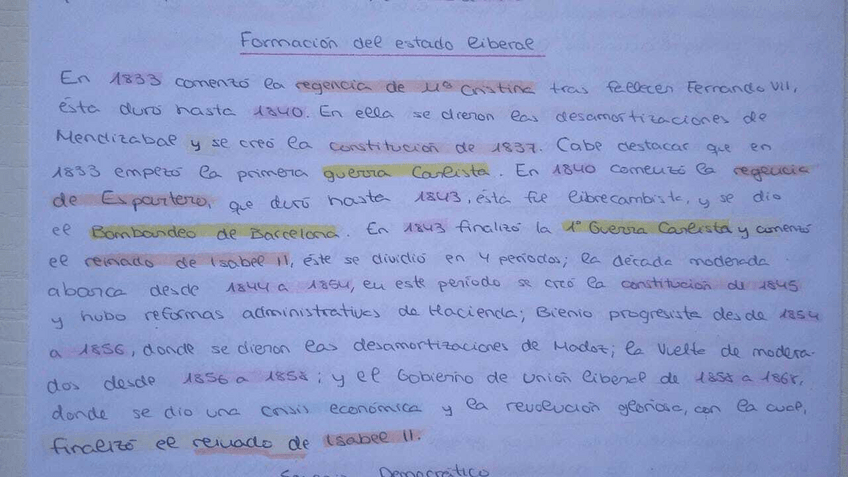 Formación del estado liberal
En 1833 comenzó la regencia de Mª Cristina tras fallecer Fernando VII,
ésta duró hasta 1840. En ella se dieron las desamortizaciones de
Mendizabal y se creó la constitución de 1837. Cabe destacar que en
1833 empezó la primera guerra Carlista. En 1840 comenzó la regencia
de Espartero, que duró hasta 1843, ésta fue librecambista, y se dio
el Bombardeo de Barcelona. En 1843 finalizó la 1ª Guerra Carlista y comenzó
el reinado de Isabel II, éste se dividió en 4 períodos; la década moderada
abarca desde 1844 a 1854, en este período se creó la constitución de 1845
y hubo reformas administrativas de Hacienda; Bienio progresista desde 1854
a 1856, donde se dieron las desamortizaciones de Madoz; la vuelta de modera-
dos desde 1856 a 1858; y el Gobierno de Unión liberal de 1858 a 1868,
donde se dio una crisis económica y la revolución gloriosa, con la cual,
finalizó el reinado de Isabel II.
Democrático